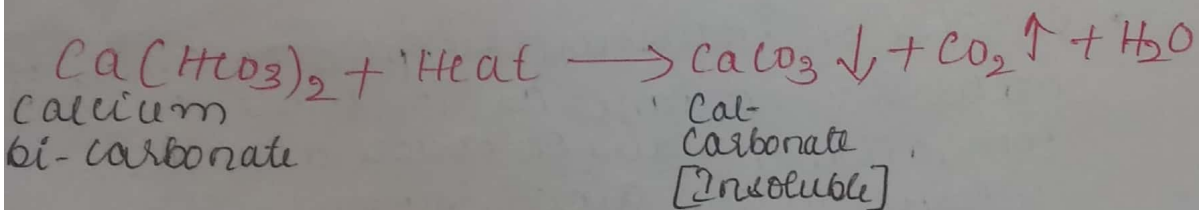 Ca(HCO3)2 + Heat → CaCO3 ↓ + CO2 ↑ + H2O
Calcium Cal-
bi-carbonate Carbonate
[Insoluble]